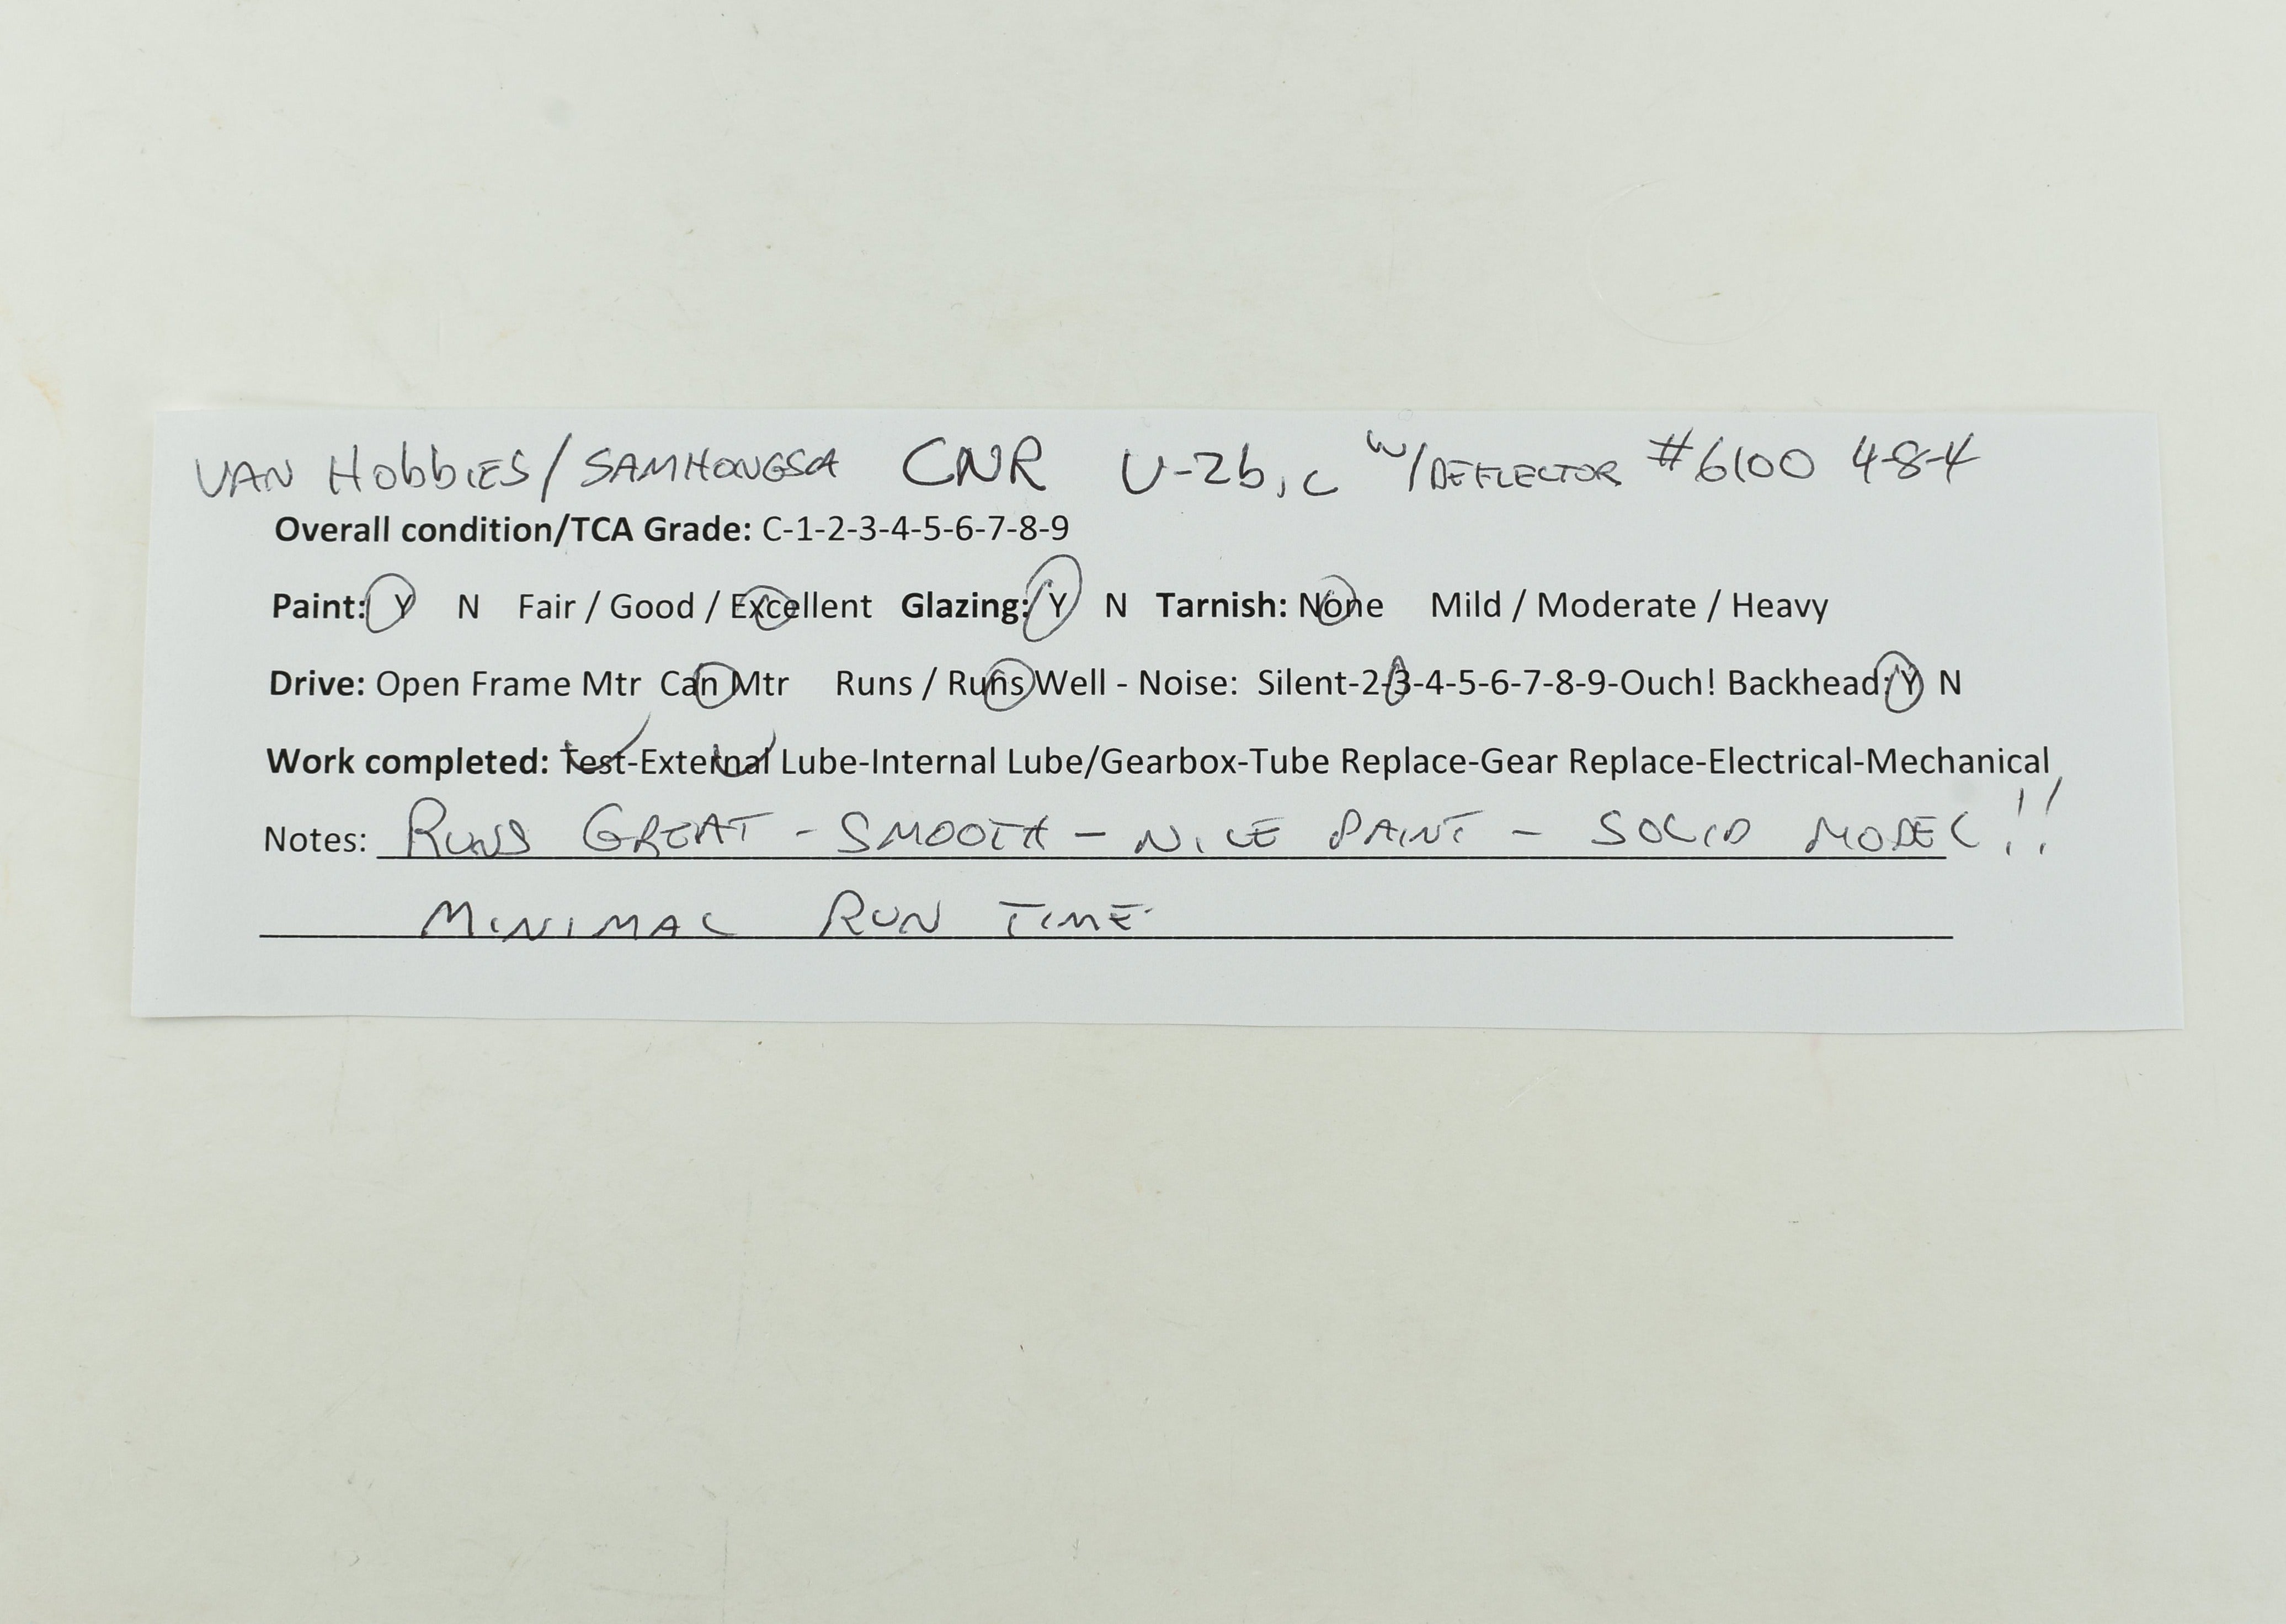 VAN HobbIES/SAMHONGSA CNR U-2b,c w/DEFLECTOR #6100 4-8-4
Overall condition/TCA Grade: C-1-2-3-4-5-6-7-8-9
Paint: Y N Fair / Good / Excellent Glazing: Y N Tarnish: None Mild / Moderate / Heavy
Drive: Open Frame Mtr Can Mtr Runs / Runs Well - Noise: Silent-2-3-4-5-6-7-8-9-Ouch! Backhead: Y N
Work completed: Test-External Lube-Internal Lube/Gearbox-Tube Replace-Gear Replace-Electrical-Mechanical
Notes: RUNS GREAT - SMOOTH - NICE PAINT - SOLID MODEL!!
MINIMAL RUN TIME